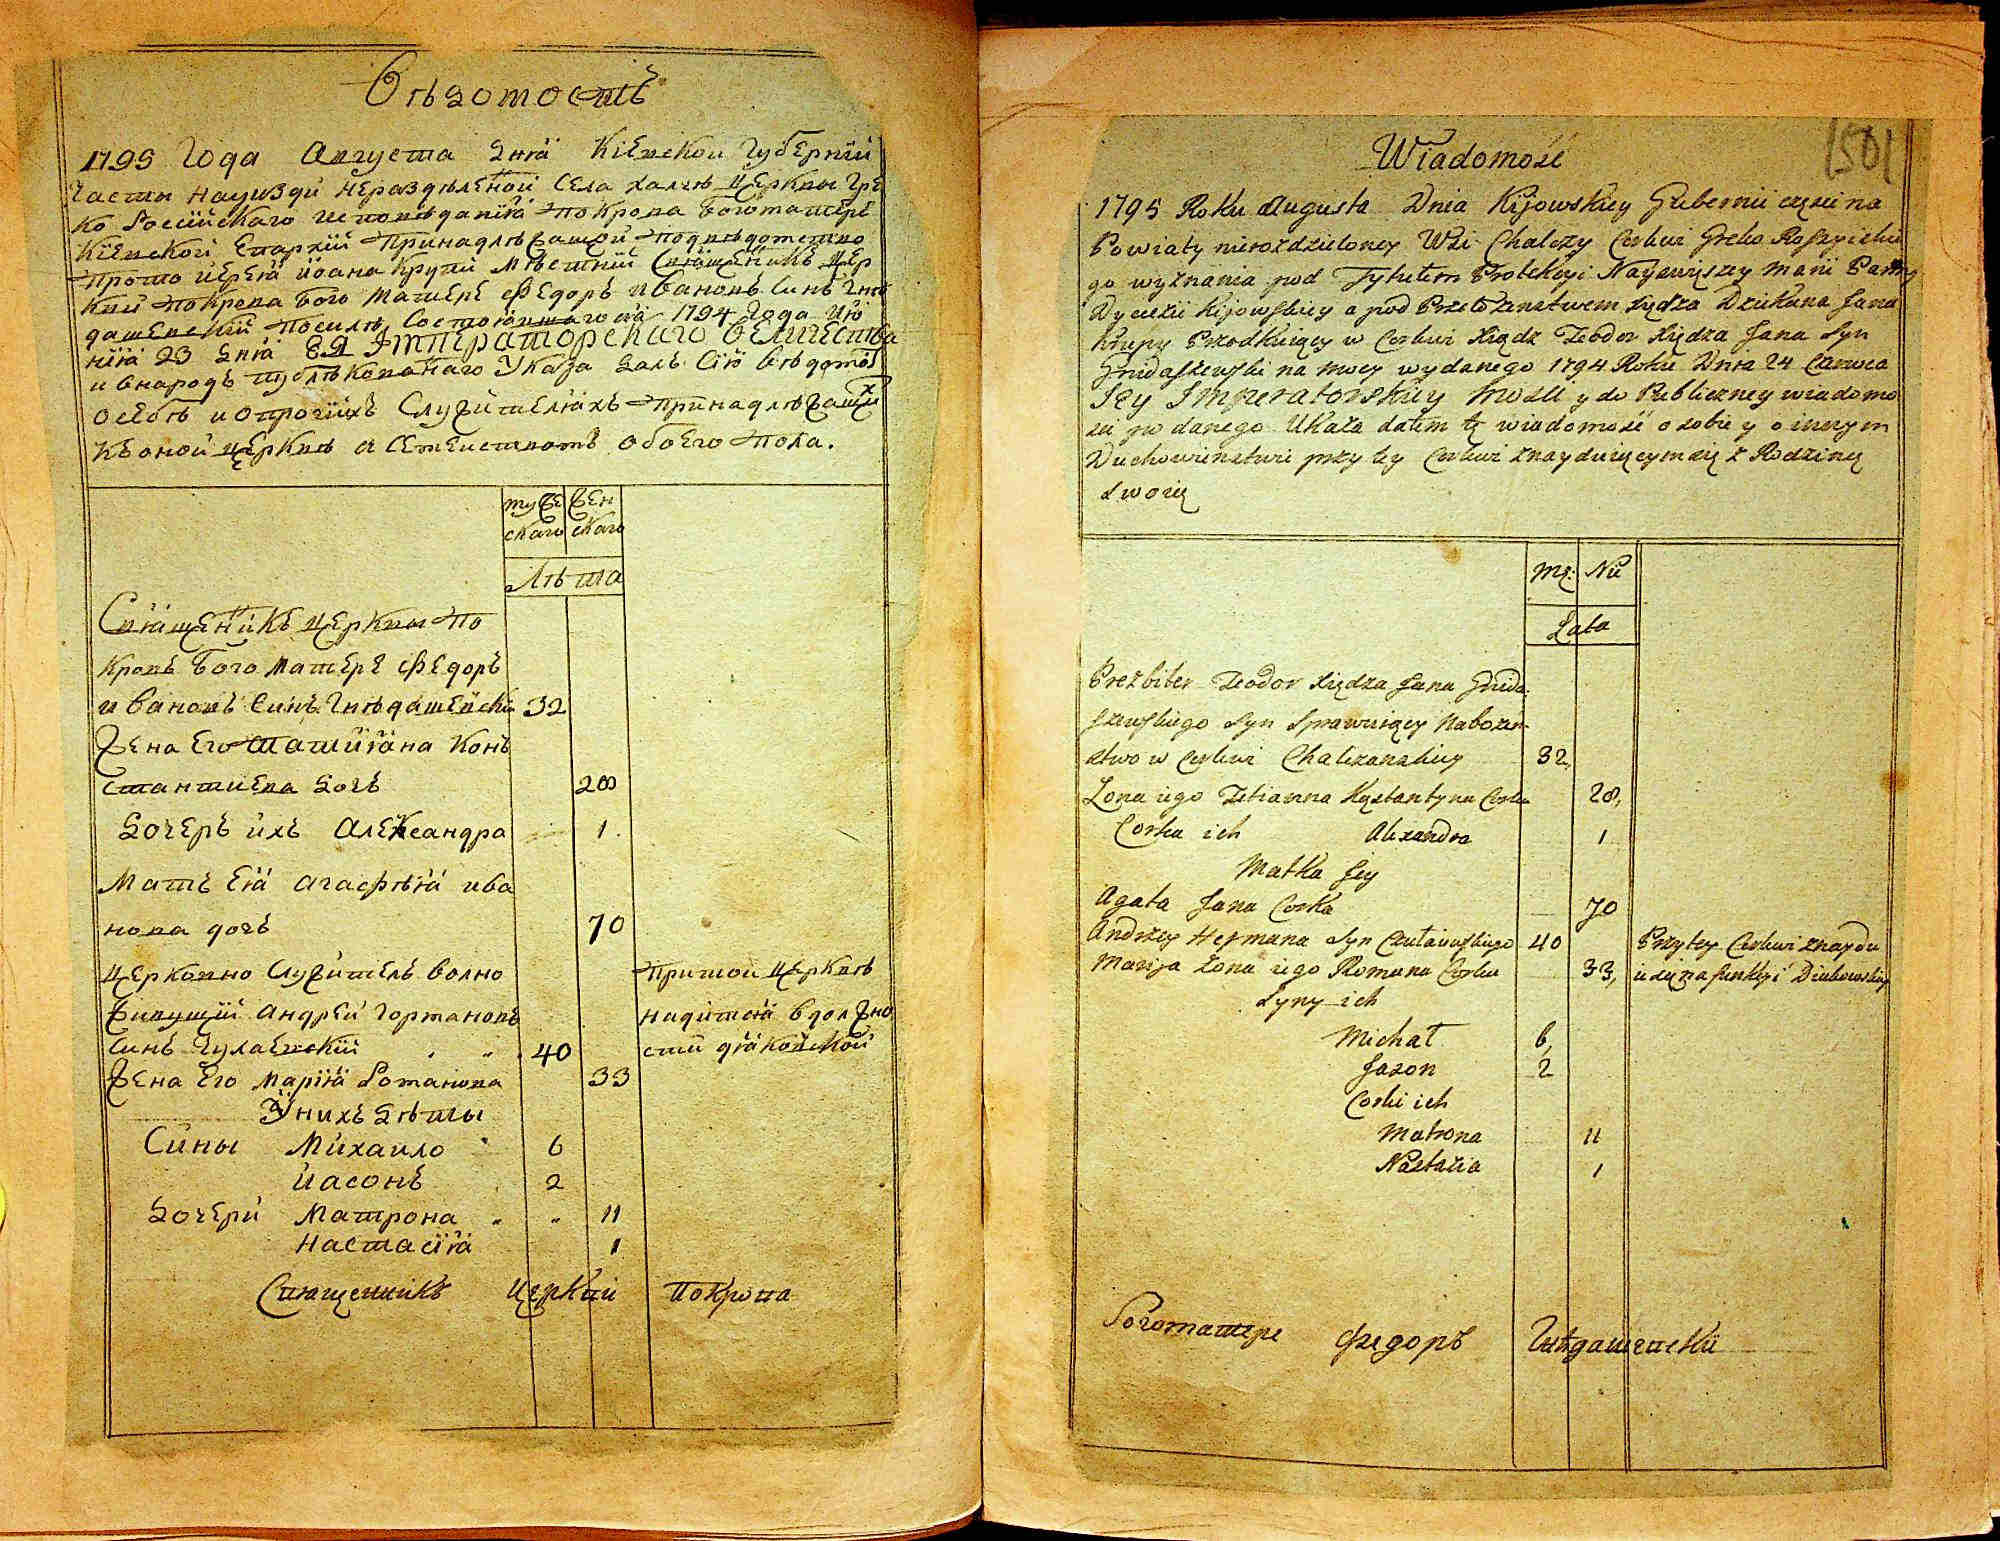 Вѣдомость
1795 Года Августа дня Кіевской Губерніи
Части на уѣзди нераздѣленой Села халчѣ Церкви Гре
ко Росіискаго исповѣданія покрова Богоматере
Кіевской Епархіи принадлѣжащой подвѣдомство
прото иерея иоана Крупи мѣстній Священикъ Цер
кви покрова Бого Матере Федоръ ивановъ Синъ Гнѣ
дашевскій посилѣ Состоявшагося 1794 Года Ию
нія 23 дня ЕЯ Імператорскаго Величества
и внародъ публѣкованаго Указа далъ Сію вѣдомо
о себѣ и опрочіихъ Служителяхъ принадлѣжащих
Къ оной церквѣ и Семействомъ обоего пола.
муже жен
скаго скаго
Лѣта
Священикъ церкви по
кровъ Бого Матере Федоръ
ивановъ Синъ Гнѣдашевски 32
Жена Его Татияна Конъ
стантиева дочъ 28
Дочеръ ихъ Александра 1
Мать Ея агафѣя ива
нова дочъ 70
Церковно Служитель волно
живущій андрей Гормановъ
Синъ Чулаевскій 40
При той церквѣ
находится в должно
сти дяконской
Жена Его Марія Романова 33
У них дѣти
Сины Михаило 6
Иасонъ 2
Дочери Матрона 11
Настасія 1
Священникъ Церкви Покрова
1501
Wiadomość
1795 Roku Augusta Dnia Kijowskiey Gubernii części na
Powiaty nierozdzieloney Wsi Chalczy Cerkwi Greko Rossyiskie
go wyznania pod Tytułem Protekcyi Nayswiętszey Marii Panny
Dyecezii Kijowskiey a pod Przełożenstwem Xiędza Dziekana Jana
Krupy Przodkuiący w Cerkwi Xiądz Teodor Xiędza Jana Syn
Gnidaszewski na mocy wydanego 1794 Roku Dnia 24 Czerwca
Jey Imperatorskiey Mości y do Publiczney wiadomo
sci podanego Ukaza dałem tę wiadomość o sobie y o innym
Duchowienstwie przy tey Cerkwi znayduiącym się z Rodziną
swoią
Mę: Nie
Lata
Prezbiter Teodor Xiędza Jana Gnida
szewskiego Syn Sprawuiący Nabożen
stwo w Cerkwi Chalczanskiey 32
Zona iego Tetianna Kąstantyna Corka 28,
Corka ich Alexandra 1
Matka Jey
Agata Jana Corka 70
Andrzey Hermana Syn Czułaiewskiego 40 Przy tey Cerkwi znaydu
Marija Zona iego Romana Corka 33, ie się na funkcyi Diakowskiey
Syny ich
Michał 6,
Jazon 2
Corki ich
Matrona 11
Nastazia 1
Богоматере Федоръ Гнѣдашевскій